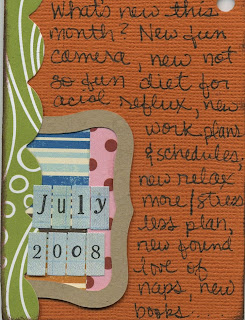 What's new this
month? New fun
camera, new not
so fun diet for
acid reflux, new
work plans
& schedules,
new relax
more/stress
less plan,
new found
love of
naps, new
books....
July
2008